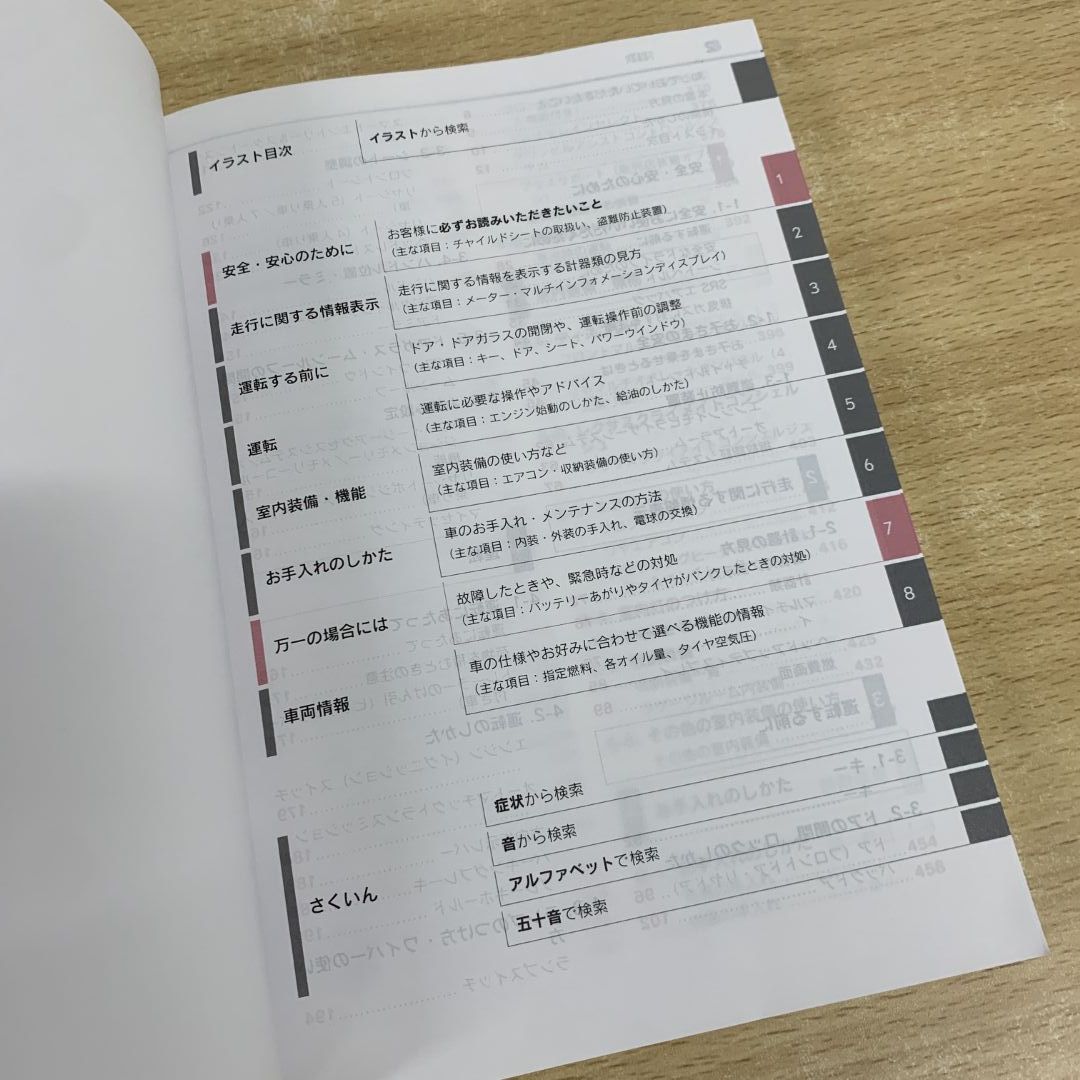 イラスト目次
イラストから検索
安全・安心のために
お客様に必ずお読みいただきたいこと
(主な項目:チャイルドシートの取扱い、盗難防止装置)
1
走行に関する情報表示
走行に関する情報を表示する計器類の見方
(主な項目:メーター・マルチインフォメーションディスプレイ)
2
運転する前に
ドア・ドアガラスの開閉や、運転操作前の調整
(主な項目:キー、ドア、シート、パワーウインドウ)
3
運転
運転に必要な操作やアドバイス
(主な項目:エンジン始動のしかた、給油のしかた)
4
室内装備・機能
室内装備の使い方など
(主な項目:エアコン・収納装備の使い方)
5
お手入れのしかた
車のお手入れ・メンテナンスの方法
(主な項目:内装・外装の手入れ、電球の交換)
6
万一の場合には
故障したときや、緊急時などの対処
(主な項目:バッテリーあがりやタイヤがパンクしたときの対処)
7
車両情報
車の仕様やお好みに合わせて選べる機能の情報
(主な項目:指定燃料、各オイル量、タイヤ空気圧)
8
さくいん
症状から検索
音から検索
アルファベットで検索
五十音で検索